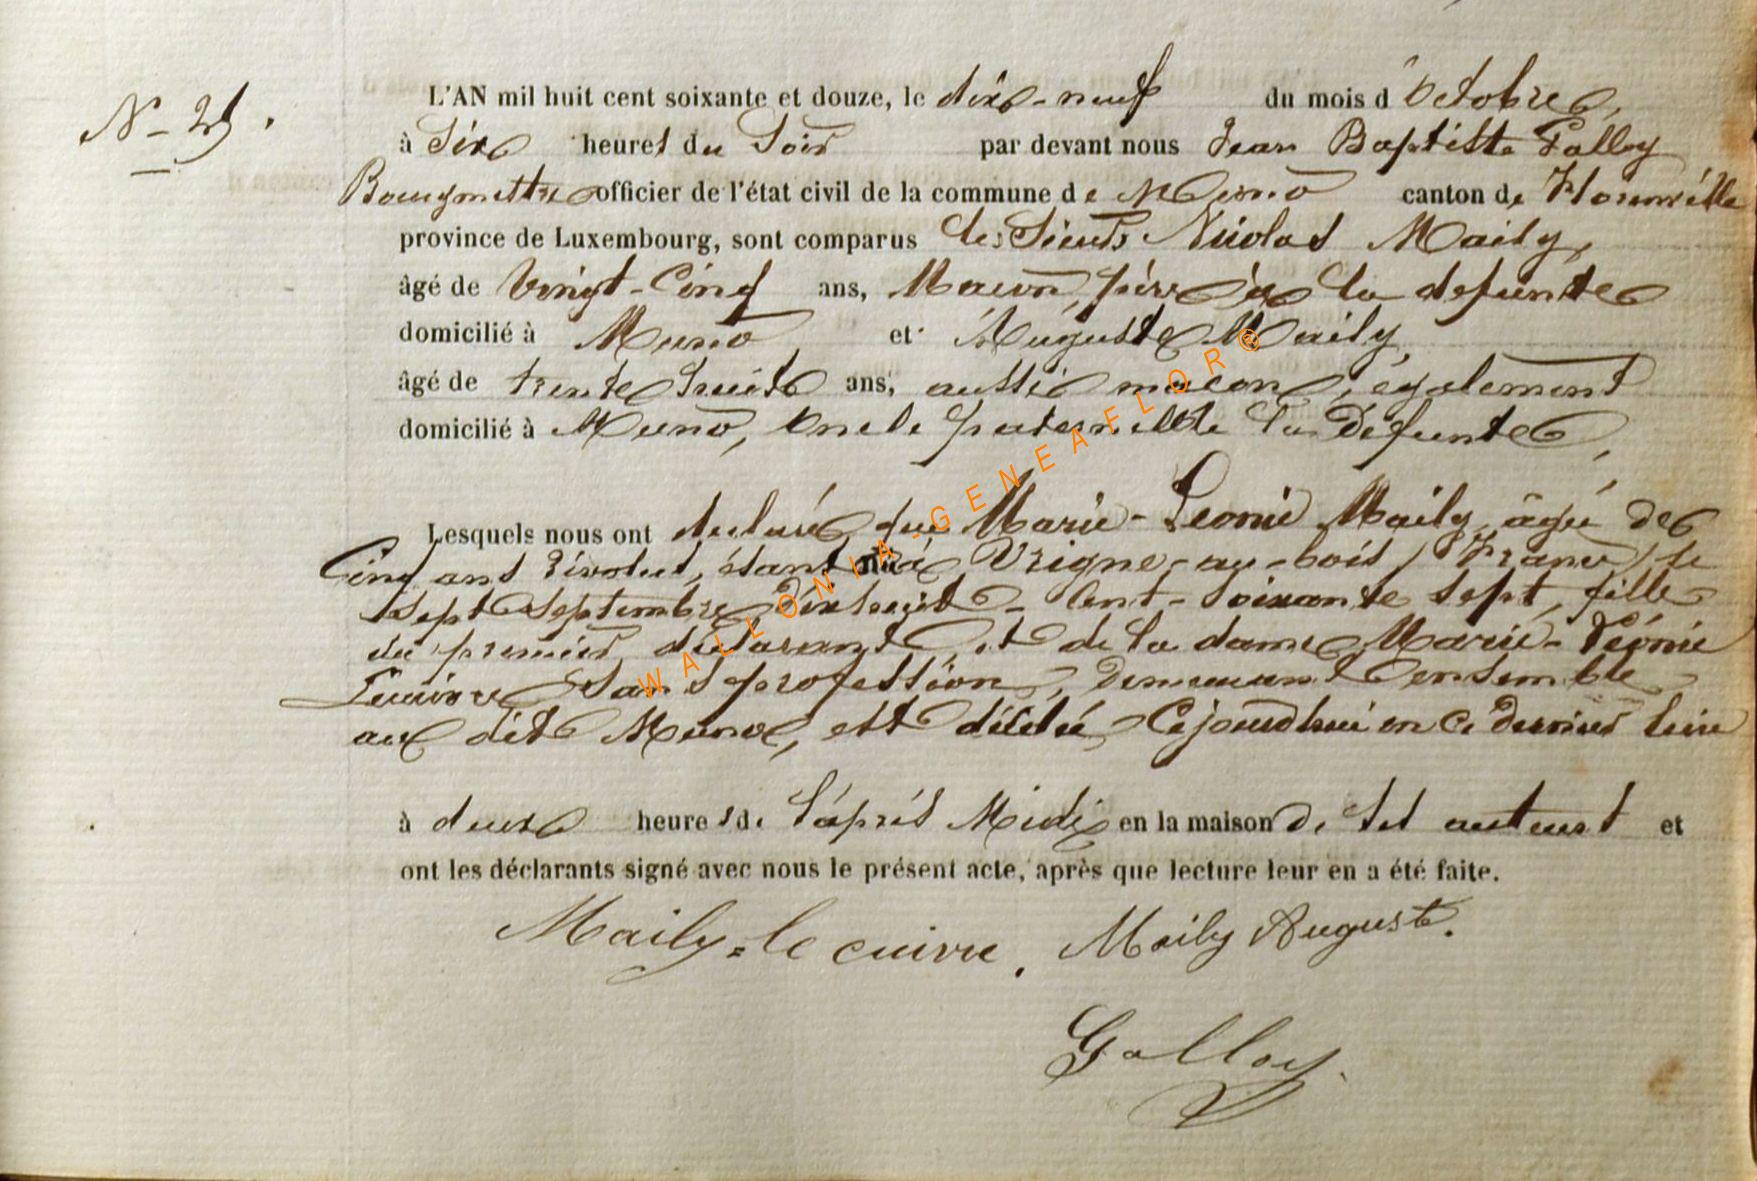 N- 25.
L'AN mil huit cent soixante et douze, le dixe-neuf du mois d'Octobre,
à Sixe heures du Soir par devant nous Jean Baptiste Galloy
Bourgmettre officier de l'état civil de la commune de Muno canton de Florenville
province de Luxembourg, sont comparus les Sieurs Nicolas Maily,
âgé de Vingt-Cinq ans, Macon, père à la defunte
domicilié à Muno et Auguste Maily,
âgé de trente huit ans, aussi macon, également
domicilié à Muno, Oncle paternelle de la Défunte,
Lesquels nous ont declaré que Marie-Leonie Maily agé de
Cinq ans révolus, étant née à Vrigne-au-bois (France) le
Sept Septembre dix huit-Cent-Soixante sept, fille
du premier déclarant, et de la dame Marie-Léonie
Lecuivre Sans profession, Demeurant ensemble
au dit Muno, est décédée Cejourdhui en ce dernier lieu
à deux heures de l'après Midi en la maison de ses auteurs et
ont les déclarants signé avec nous le présent acte, après que lecture leur en a été faite.
Maily=le cuivre. Maily Auguste.
Galloy
WALLONIA-GENEAFLOR®